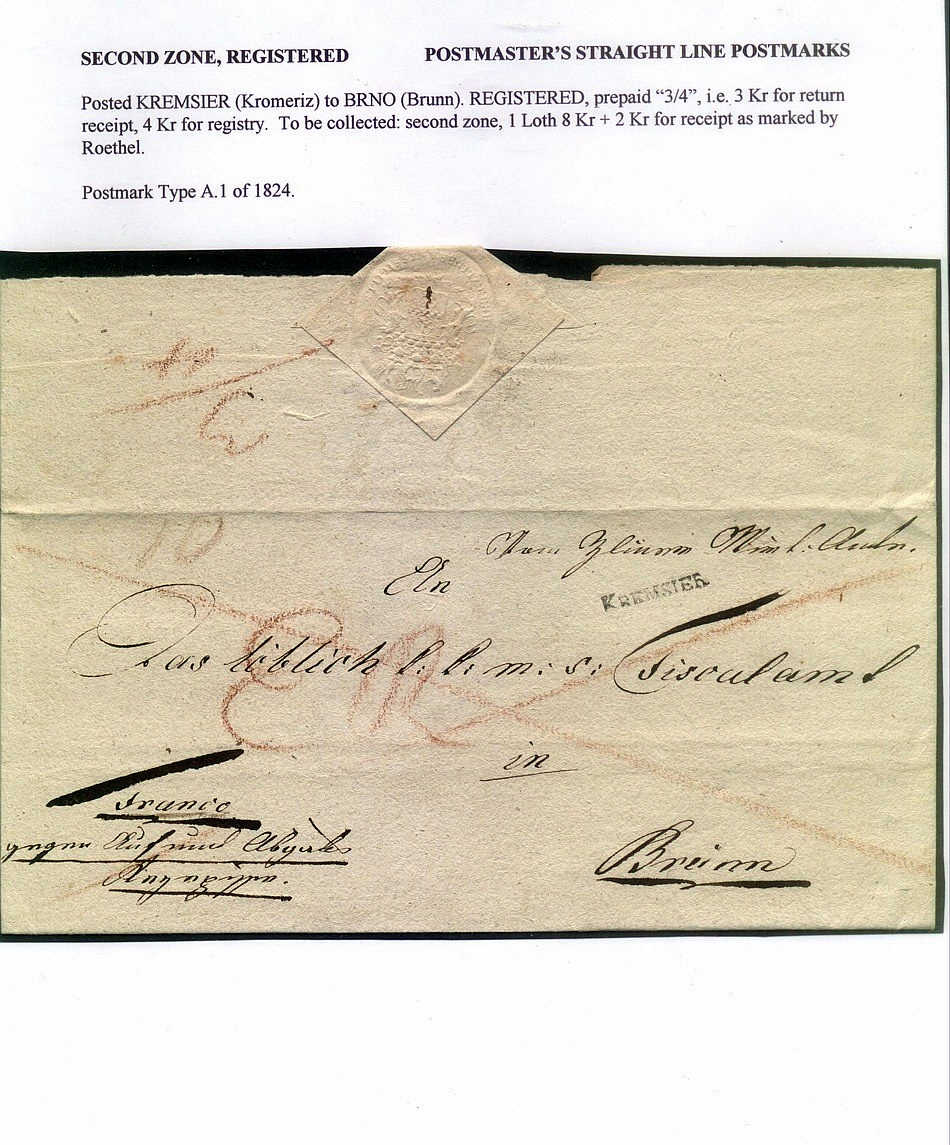 SECOND ZONE, REGISTERED POSTMASTER'S STRAIGHT LINE POSTMARKS
Posted KREMSIER (Kromeriz) to BRNO (Brunn). REGISTERED, prepaid “3/4”, i.e. 3 Kr for return
receipt, 4 Kr for registry. To be collected: second zone, 1 Loth 8 Kr + 2 Kr for receipt as marked by
Roethel.
Postmark Type A.1 of 1824.
10
Vom
An
KREMSIER
Das löblich k: k: m: s: Fiscalamt
in
Franco
gegen Auf und Abgabs
Brünn